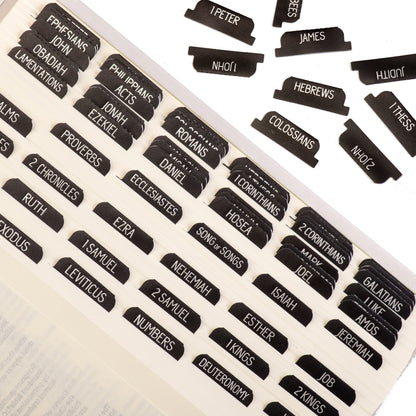 1 PETER
JAMES
1 JOHN
JUDITH
HEBREWS
1 THESS
COLOSSIANS
2 JOHN
EPHESIANS
JOHN
OBADIAH
LAMENTATIONS
PHILIPPIANS
ACTS
JONAH
EZEKIEL
PROVERBS
2 CHRONICLES
RUTH
EXODUS
ROMANS
DANIEL
ECCLESIASTES
EZRA
1 SAMUEL
LEVITICUS
1 CORINTHIANS
HOSEA
SONG OF SONGS
NEHEMIAH
2 SAMUEL
NUMBERS
2 CORINTHIANS
MARK
JOEL
ISAIAH
ESTHER
1 KINGS
DEUTERONOMY
GALATIANS
LUKE
AMOS
JEREMIAH
JOB
2 KINGS